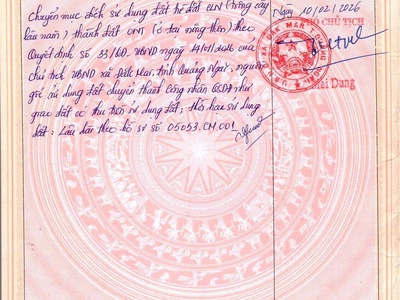 Chuyển mục đích sử dụng đất từ đất CLN (trồng cây
lâu năm) thành đất ONT (ở tại nông thôn) theo
Quyết định số 33/QĐ. UBND ngày 14/01/2026 của
chủ tịch UBND xã Đăk Mar, tỉnh Quảng Ngãi, nguồn
gốc sử dụng đất chuyển thành Công nhận QSDĐ như
giao đất có thu tiền sử dụng đất; thời hạn sử dụng
đất: Lâu dài theo hồ sơ số 05053.CM.001
Ngày 10/02/2026
CHỦ TỊCH
XÃ ĐĂK MAR
Dung